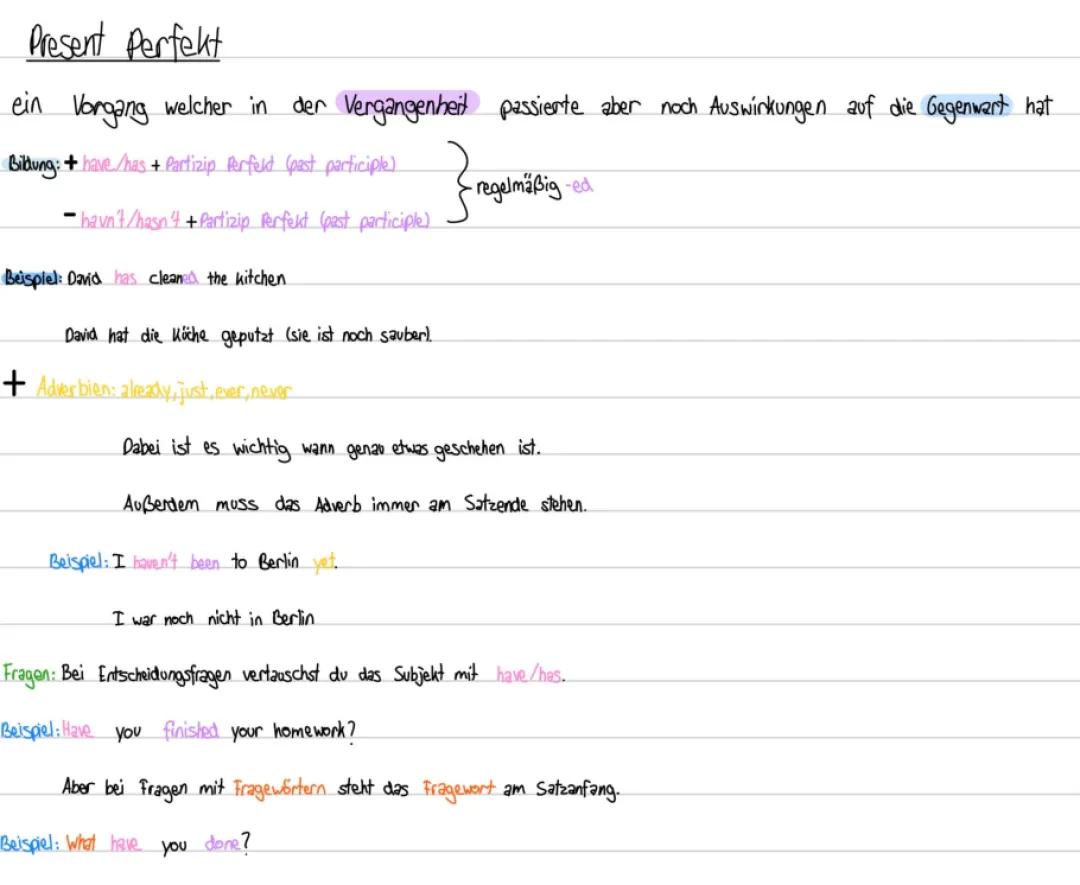 Present Perfekt
ein Vorgang welcher in der Vergangenheit passierte aber noch Auswirkungen auf die Gegenwart hat
Bildung: + have/has + Partizip Perfekt (past participle)
regelmäßig -ed
- havn't/hasn't + Partizip Perfekt (past participle)
Beispiel: David has cleaned the kitchen
David hat die Küche geputzt (sie ist noch sauber).
+ Adverbien: already, just, ever, never
Dabei ist es wichtig wann genau etwas geschehen ist.
Außerdem muss das Adverb immer am Satzende stehen.
Beispiel: I haven't been to Berlin yet.
I war noch nicht in Berlin
Fragen: Bei Entscheidungsfragen vertauschst du das Subjekt mit have/has.
Beispiel: Have you finished your homework?
Aber bei Fragen mit Fragewörtern steht das Fragewort am Satzanfang.
Beispiel: What have you done?